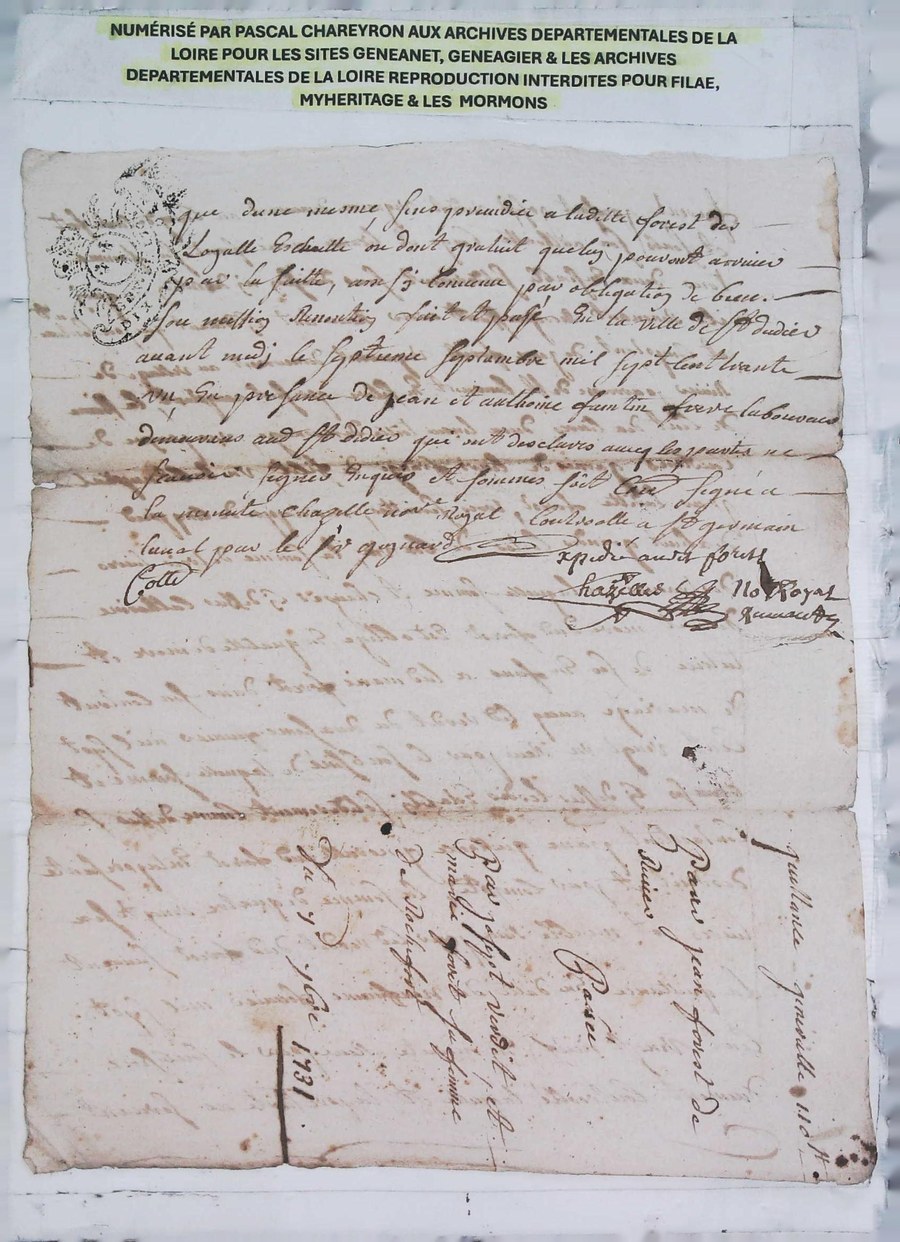 NUMÉRISÉ PAR PASCAL CHAREYRON AUX ARCHIVES DEPARTEMENTALES DE LA
LOIRE POUR LES SITES GENEANET, GENEAGIER & LES ARCHIVES
DEPARTEMENTALES DE LA LOIRE REPRODUCTION INTERDITES POUR FILAE,
MYHERITAGE & LES MORMONS
que dune mesme a ladite forest des
on dont quelin pouvont arriver
par la suitte, ainsy convenu par obligation de biens
fait et passé En la ville de St didier
avant midy le septieme septembre mil sept cent trante
un En presance de jean et anthoine frere laboureurs
demeurans aud St didier qui ont desclares avecq les parties ne
scavoir signer Enquis et sommes soit signé a
la minute chapelle not. Royal Controollé a St germain
laval par le Sr
Collé
Expedié audit forest
Chazelles No Royal
quittance generalle 110
Pour jean forest de
Passée
Par verdit et
marie forest sa femme
De Rochefort
Du 7 7bre 1731